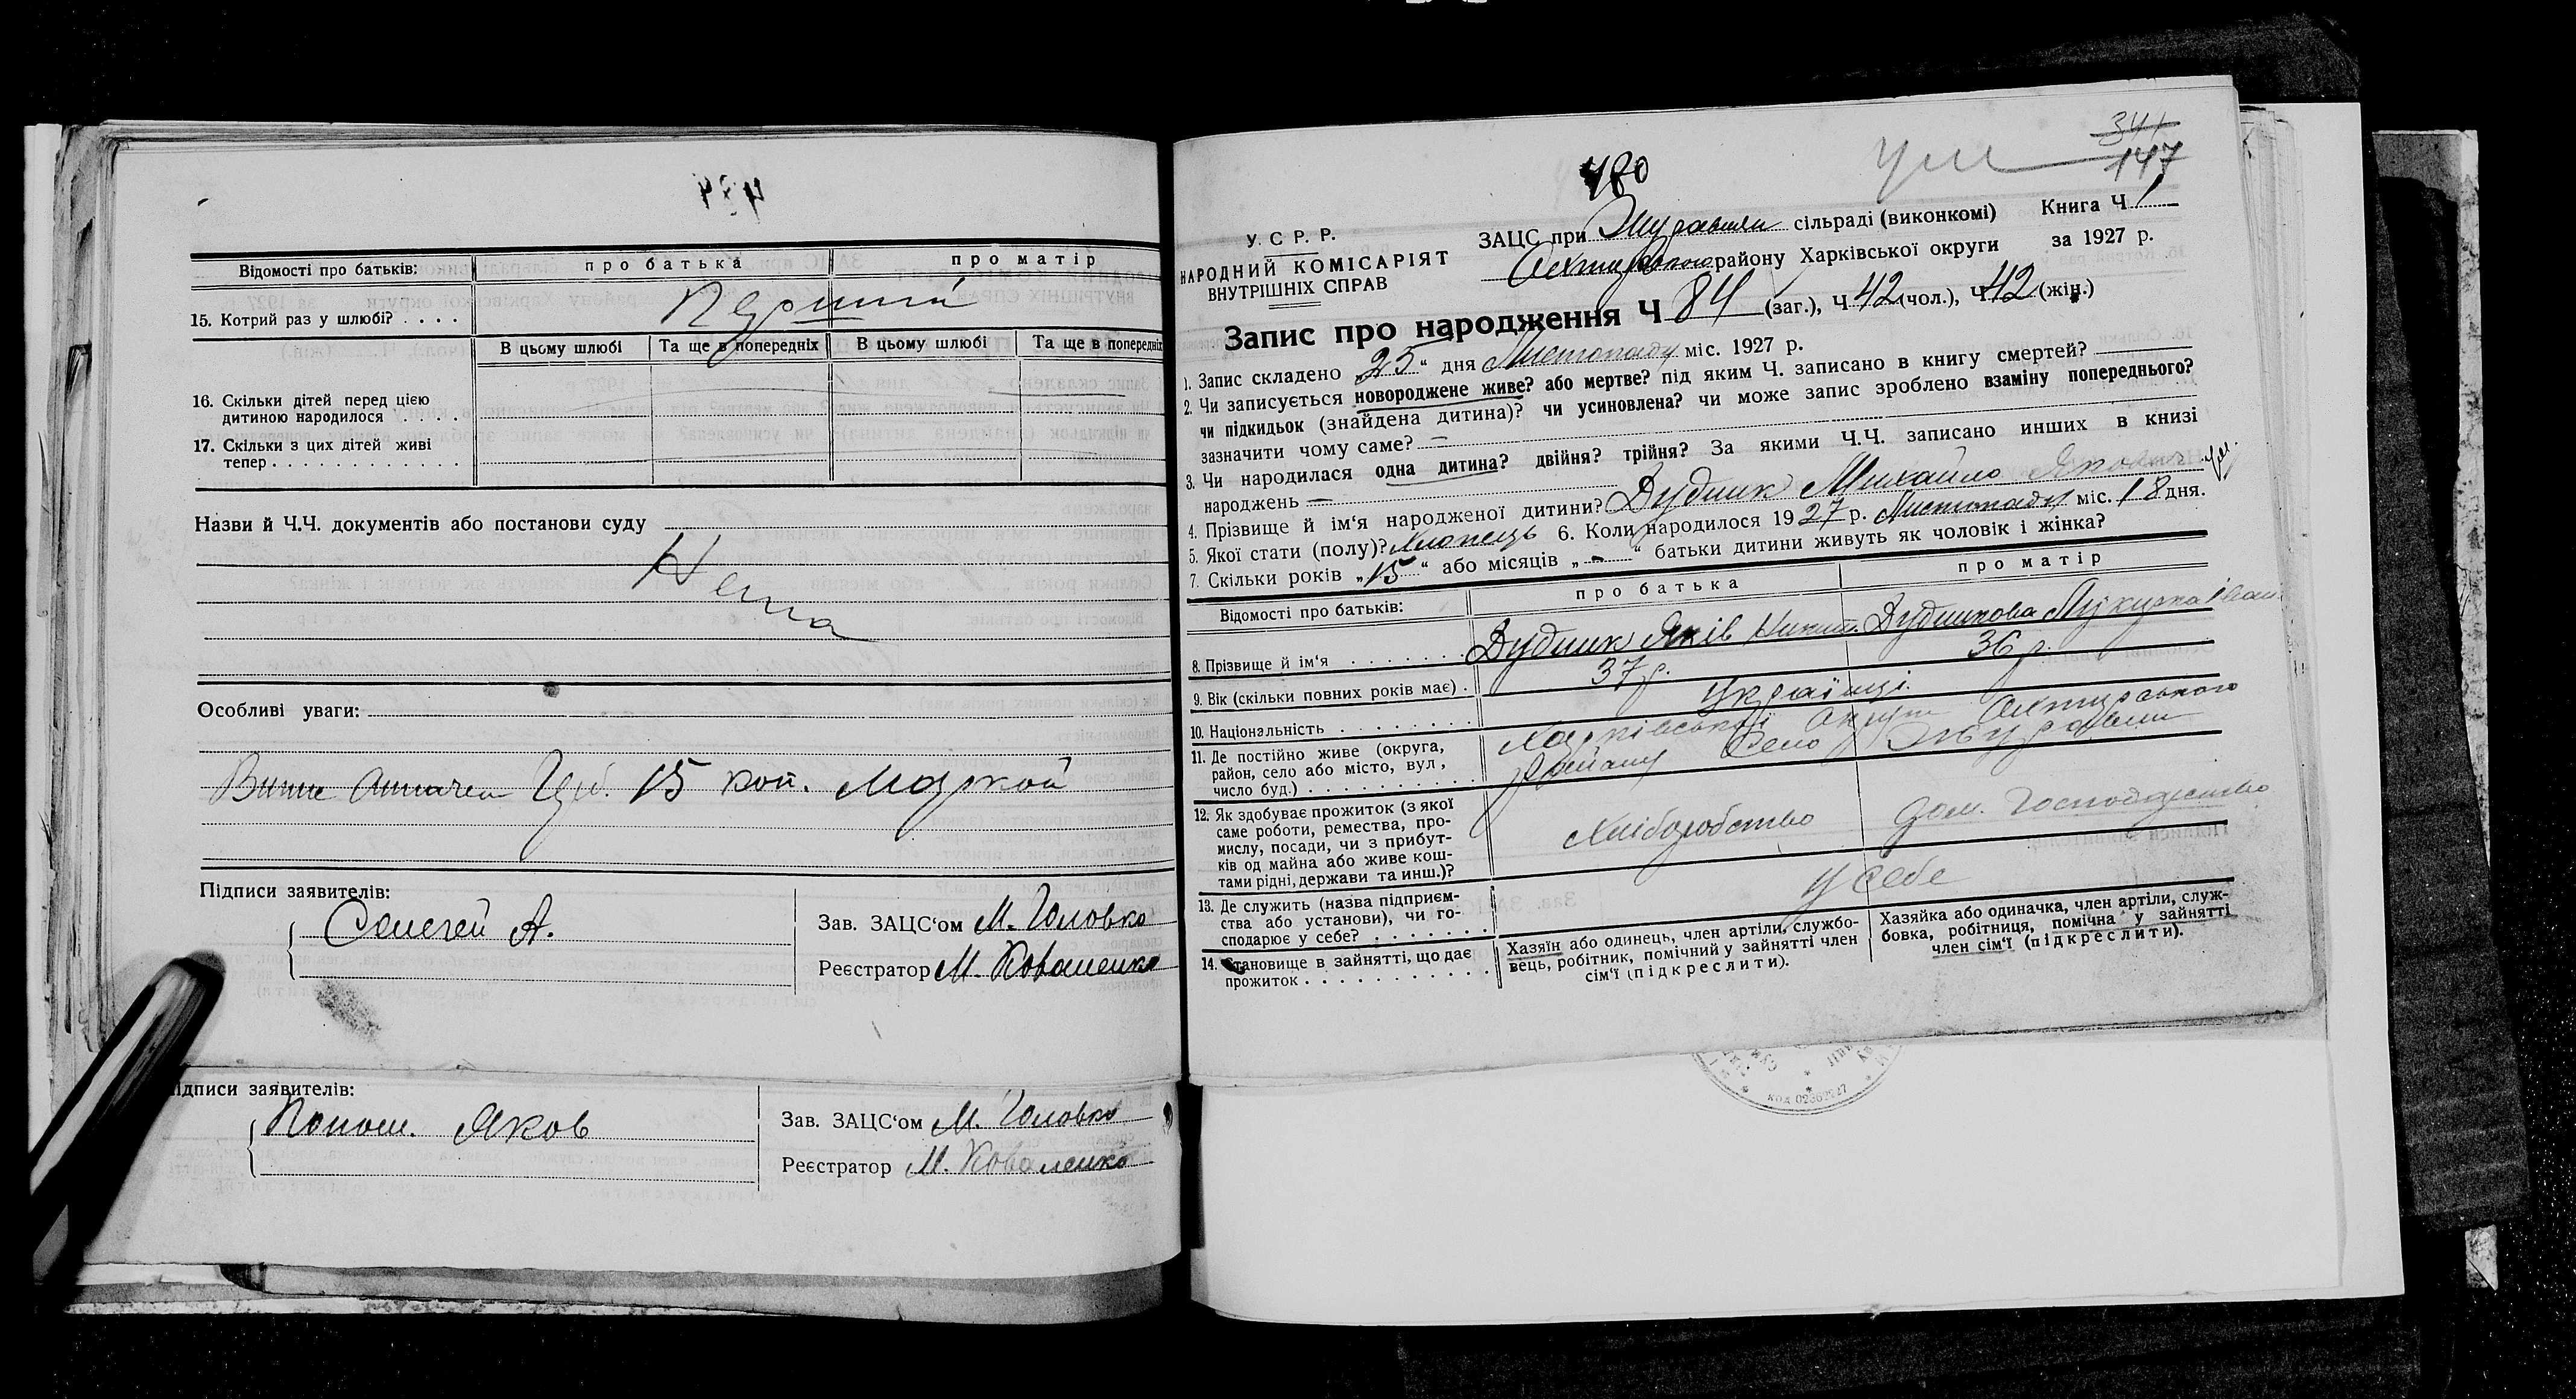 Відомості про батьків:
про батька
про матір
15. Котрий раз у шлюбі? . . . .
Перший
В цьому шлюбі
Та ще в попередніх
В цьому шлюбі
Та ще в попередніх
16. Скільки дітей перед цією
дитиною народилося . . . .
17. Скільки з цих дітей живі
тепер . . . . . . . . . . . . .
Назви й Ч.Ч. документів або постанови суду
Нема
Особливі уваги:
15 коп. Маркой
Підписи заявителів:
Селегей А.
Зав. ЗАЦС‘ом М. Головко
Реєстратор М. Коваленко
ідписи заявителів:
Яков
Зав. ЗАЦС‘ом М. Головко
Реєстратор М. Коваленко
341
147
480
У. С Р. Р.
НАРОДНИЙ КОМІСАРІЯТ
ВНУТРІШНІХ СПРАВ
ЗАЦС при Журавнян сільраді (виконкомі)
Книга Ч 1
Охтирського району Харківської округи
за 1927 р.
Запис про народження Ч 84 (заг.), Ч 42 (чол.), Ч 42 (жін.)
1. Запис складено 25 “ дня Листопаду міс. 1927 р.
2. Чи записується новороджене живе? або мертве? під яким Ч. записано в книгу смертей?
чи підкидьок (знайдена дитина)? чи усиновлена? чи може запис зроблено взаміну попереднього?
зазначити чому саме? —
3. Чи народилася одна дитина? двійня? трійня? За якими Ч.Ч. записано инших в книзі
народжень —
4. Прізвище й ім‘я народженої дитини? Дудник Михайло Якович
5. Якої стати (полу)? Хлопець 6. Коли народилося 1927 р. Листопаду міс. 18 дня.
7. Скільки років „15“ або місяців „-“ батьки дитини живуть як чоловік і жінка?
Відомості про батьків:
про батька
про матір
8. Прізвище й ім‘я . . . . . . .
Дудник Яків Никит.
Дудникова Лукирка Іван.
9. Вік (скільки повних років має) .
37 р.
36 р.
10. Національність . . . . . . . .
Українці.
11. Де постійно живе (округа,
район, село або місто, вул,
число буд.) . . . . . . . . . .
Харківської округи Охтирського
Району Село Журавни
12. Як здобуває прожиток (з якої
саме роботи, ремества, про-
мислу, посади, чи з прибут-
ків од майна або живе кош-
тами рідні, держави та инш.)?
Хліборобство
дом. Господарство
13. Де служить (назва підприєм-
ства або установи), чи го-
сподарює у себе? . . . . . . .
у себе
14. Становище в зайнятті, що дає
прожиток . . . . . . . . . .
Хазяїн або одинець, член артіли, службо-
вець, робітник, помічний у зайнятті член
сім‘ї (підкреслити).
Хазяйка або одиначка, член артіли, служ-
бовка, робітниця, помічна у зайнятті
член сім‘ї (підкреслити).